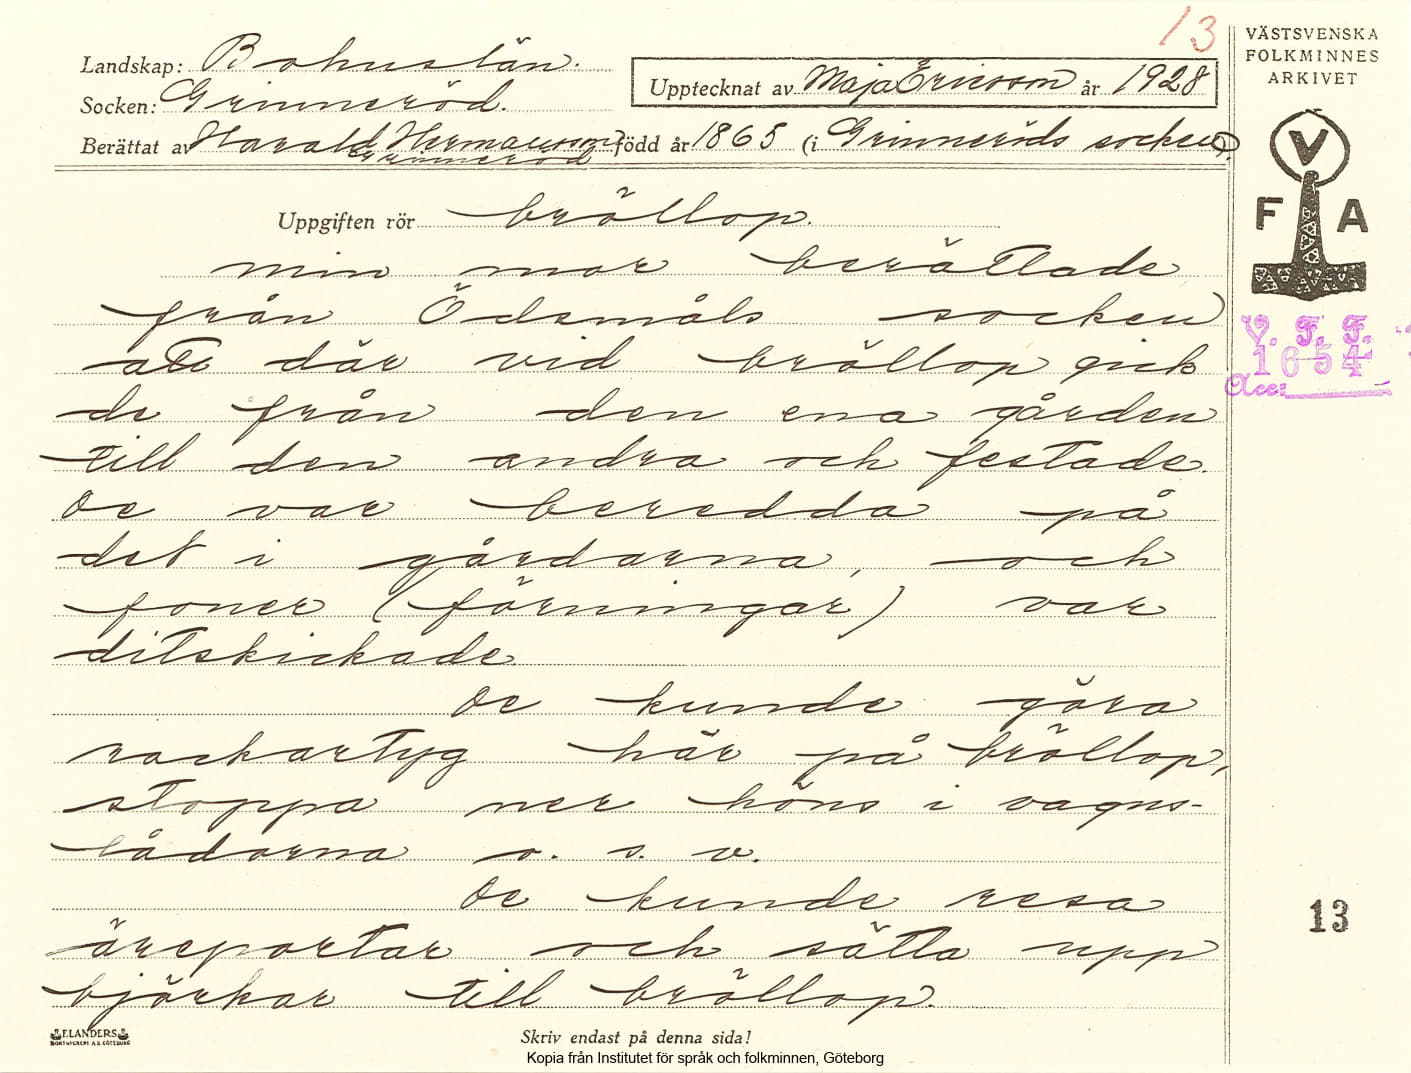 13
Landskap: Bohuslän.
Socken: Grinneröd.
Upptecknat av Maja Ericsson år 1928
Berättat av Harald Hermansson född år 1865 (i Grinneröds socken).
Grinneröd
VÄSTSVENSKA
FOLKMINNES
ARKIVET
V
F A
V. F. F.
1654
Acc:
Uppgiften rör bröllop.
min mor berättade
från Ödsmåls socken
att där vid bröllop gick
de från den ena gården
till den andra och festade.
De var beredda på
det i gårdarna, och
foner (förningar) var
ditskickade
De kunde göra
rackartyg här på bröllop,
stoppa ner höns i vagns-
lådorna o. s. v.
De kunde resa
äreportar och sätta upp
björkar till bröllop.
13
ELANDERS
BOKTRYCKERI A.B. GÖTEBORG
Skriv endast på denna sida!
Kopia från Institutet för språk och folkminnen, Göteborg